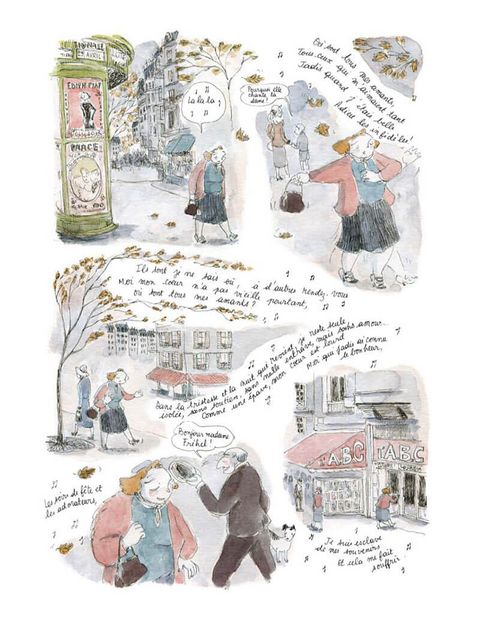 EDITH PIAF
la la la ♪
Pourquoi elle
chante la
dame?
Où sont tous mes amants,
Tous ceux qui m'aimaient tant
Jadis quand j'étais belle
Adieu les infidèles!
Ils sont je ne sais où, à d'autres rendez-vous
Moi mon cœur n'a pas vieilli pourtant,
où sont tous mes amants?
Dans la tristesse et la nuit qui revient je reste seule
isolée, sans soutien, sans nulle entrave, mais sans amour...
Comme une épave, mon cœur est lourd
Moi qui jadis ai connu
le bonheur,
Bonjour madame
Fréhel!
Les soirs de fête et
les adorateurs,
l'ABC
l'ABC
Je suis esclave
de mes souvenirs
Et cela me fait
souffrir